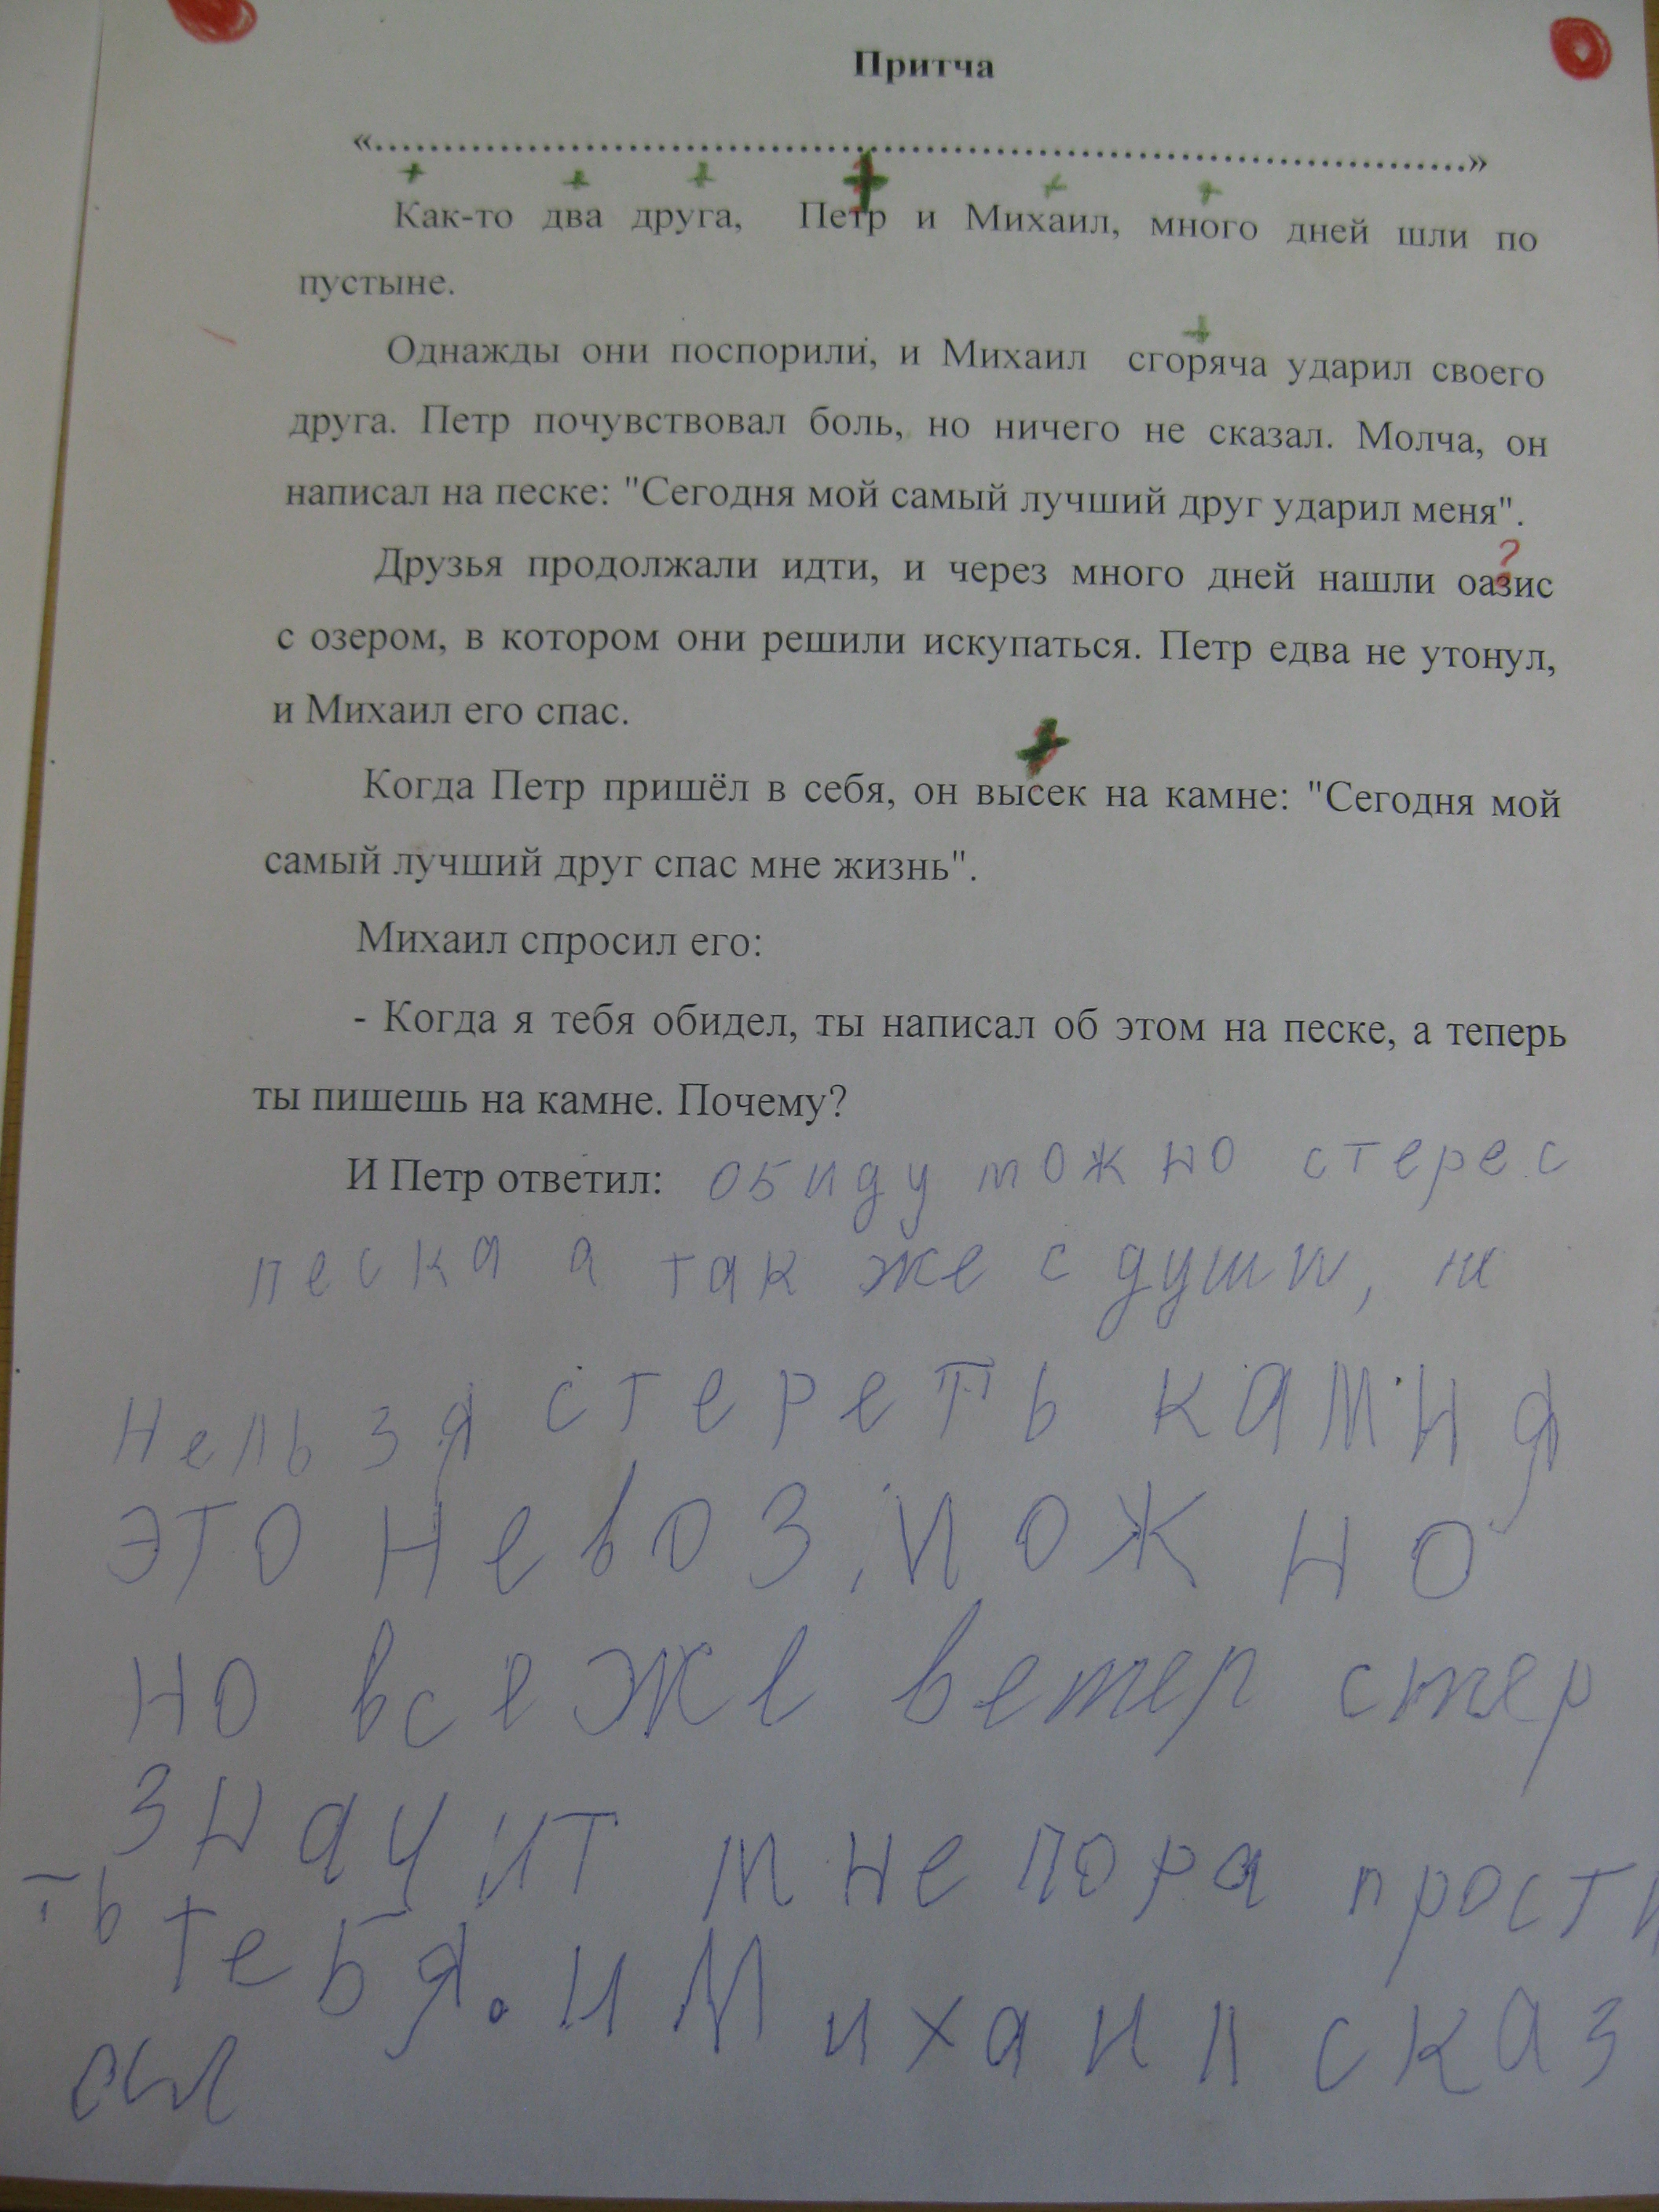 Притча
«..................................................................................»
Как-то два друга, Петр и Михаил, много дней шли по
пустыне.
Однажды они поспорили, и Михаил сгоряча ударил своего
друга. Петр почувствовал боль, но ничего не сказал. Молча, он
написал на песке: "Сегодня мой самый лучший друг ударил меня".
?
Друзья продолжали идти, и через много дней нашли оазис
с озером, в котором они решили искупаться. Петр едва не утонул,
и Михаил его спас.
Когда Петр пришёл в себя, он высек на камне: "Сегодня мой
самый лучший друг спас мне жизнь".
Михаил спросил его:
- Когда я тебя обидел, ты написал об этом на песке, а теперь
ты пишешь на камне. Почему?
И Петр ответил: обиду можно стере с
песка а так же с души,
нельзя стереть камня
это невозможно
но все же ветер стер
значит мне пора прости
ть тебя. и Михаил сказ
ал